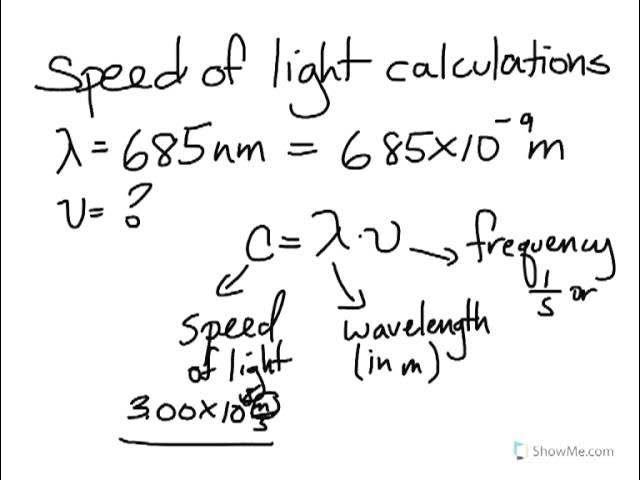 Speed of light calculations
λ = 685nm = 685×10⁻⁹ m
ν = ?
C = λ·ν → frequency
1/s or
speed of light
wavelength (in m)
3.00×10 m/s
ShowMe.com